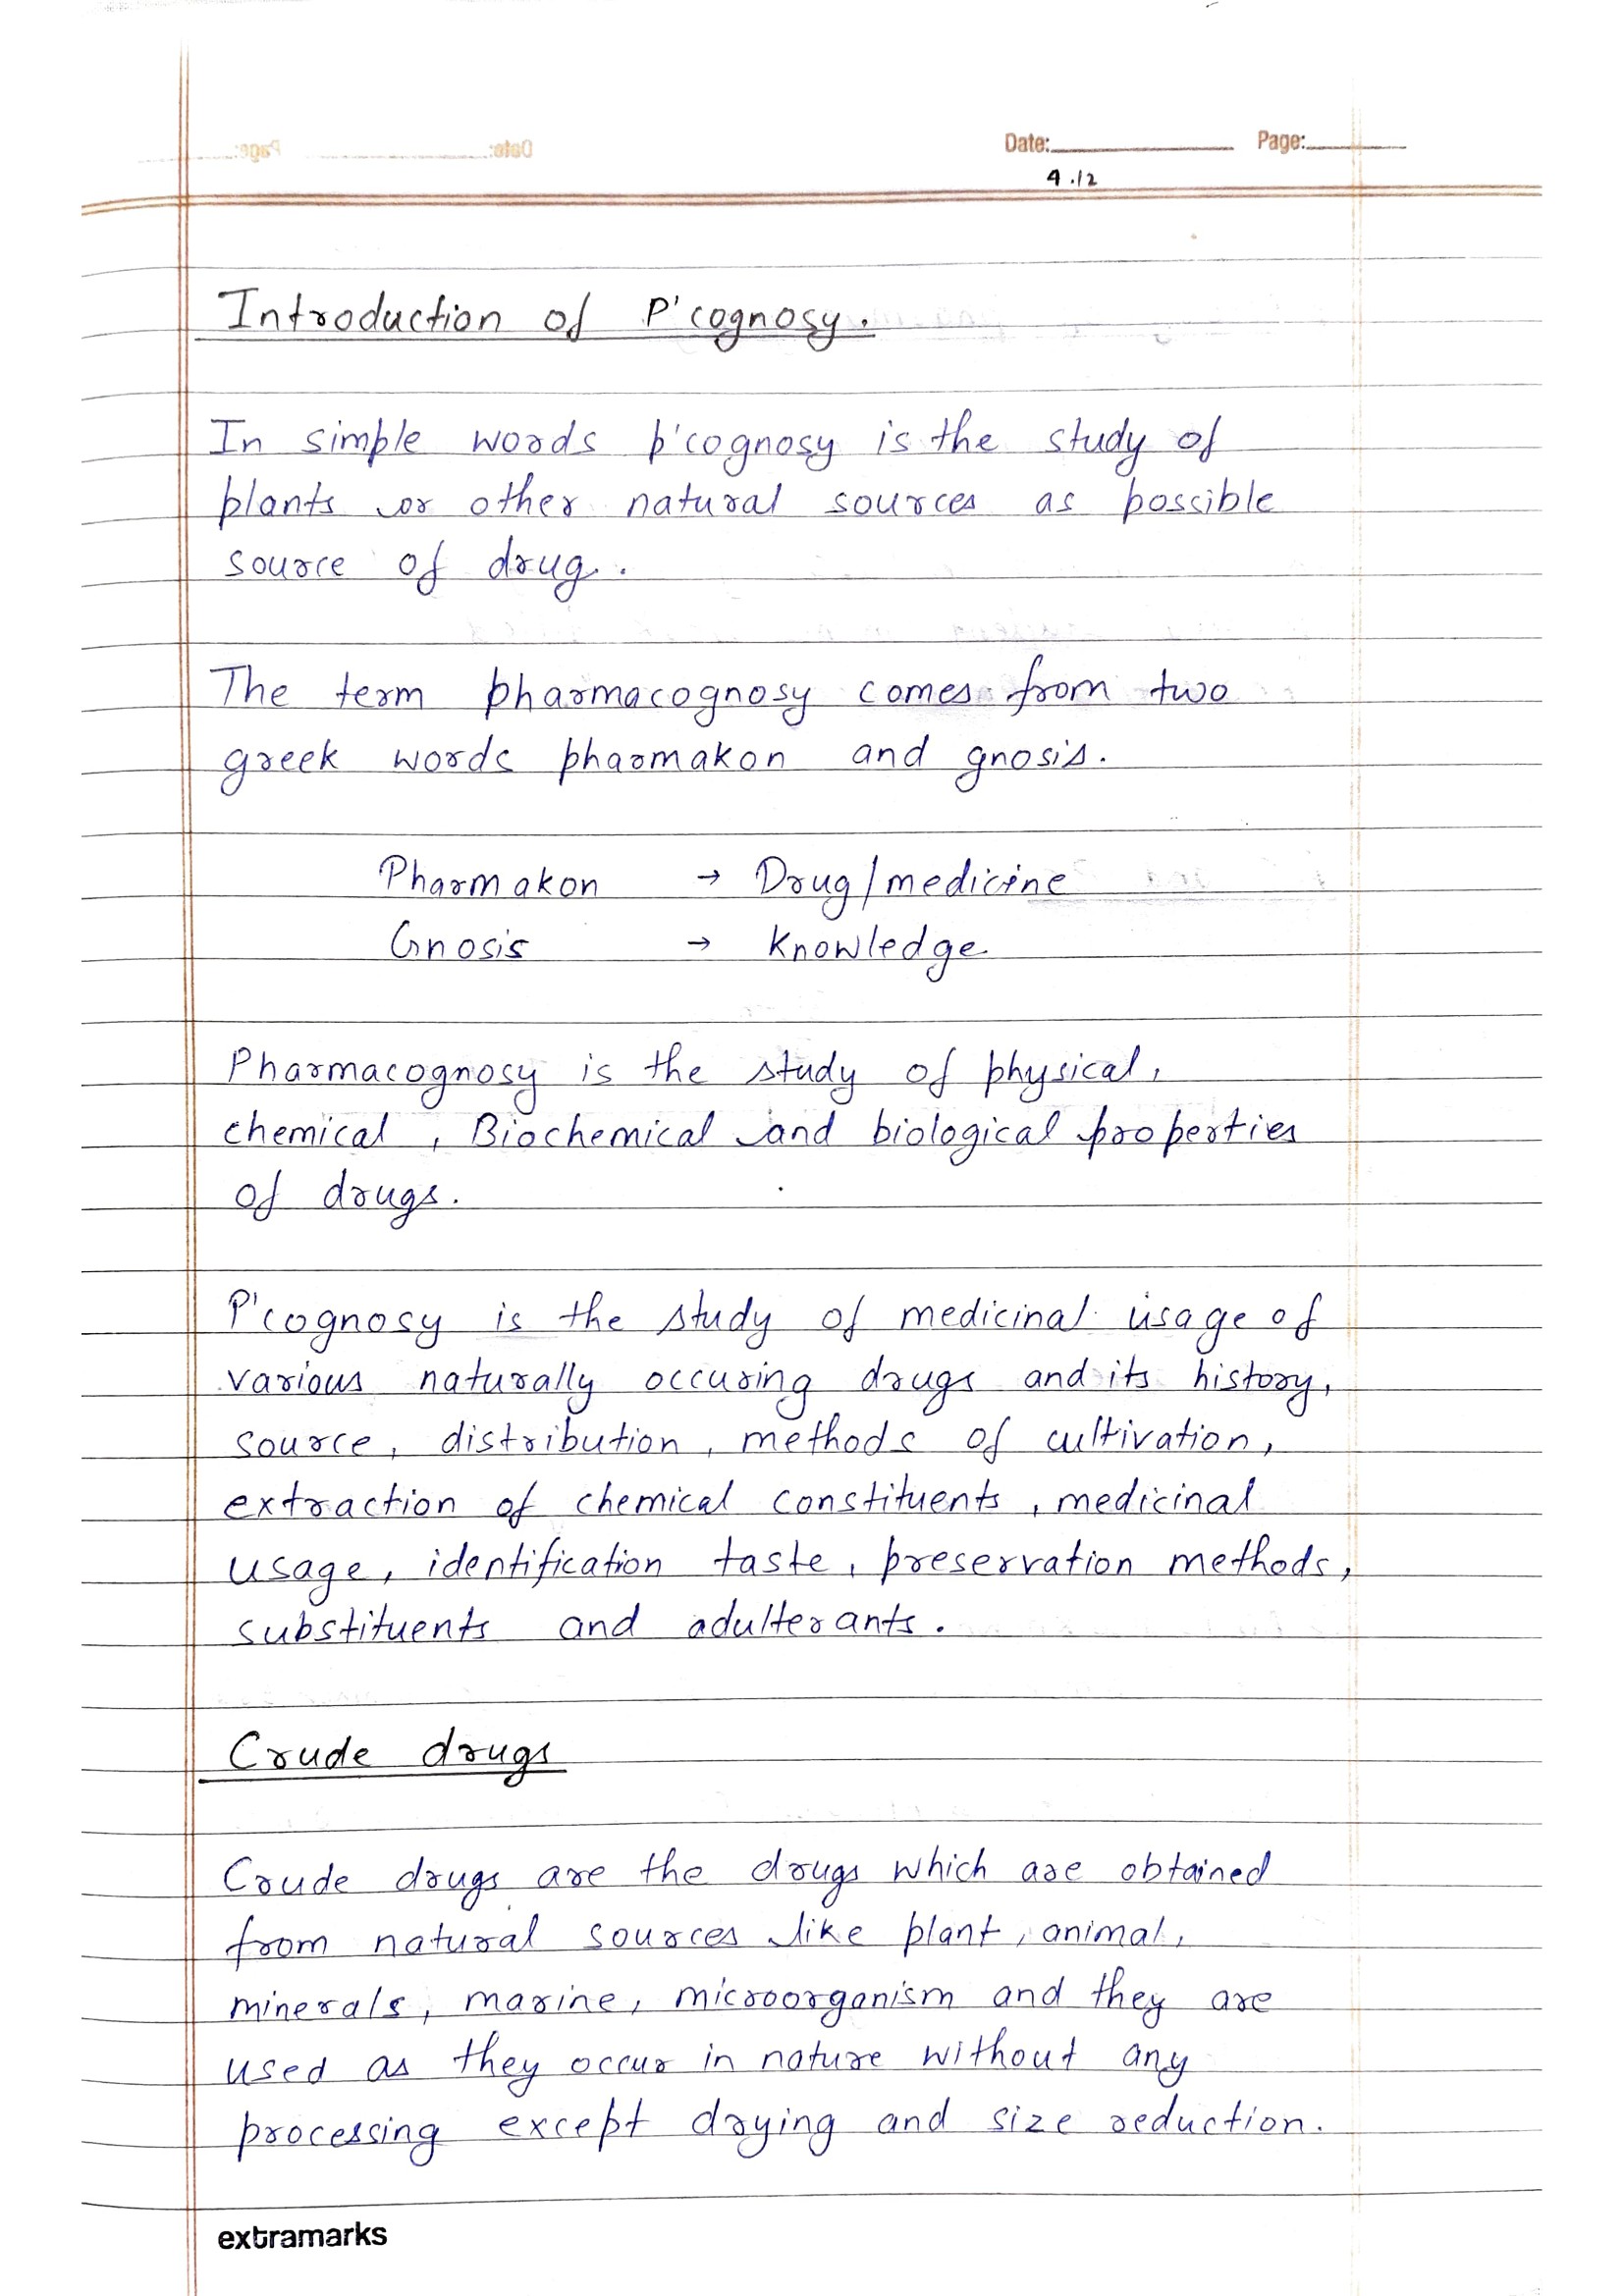 Date: Page:
4.12
Introduction of P'cognosy.
In simple words p'cognosy is the study of
plants or other natural sources as possible
source of drug.
The term pharmacognosy comes from two
greek words pharmakon and gnosis.
Pharmakon → Drug/medicine
Gnosis → Knowledge
Pharmacognosy is the study of physical,
chemical, Biochemical and biological properties
of drugs.
P'cognosy is the study of medicinal usage of
various naturally occuring drugs and its history,
source, distribution, methods of cultivation,
extraction of chemical constituents, medicinal
usage, identification taste, preservation methods,
substituents and adulterants.
Crude drugs
Crude drugs are the drugs which are obtained
from natural sources like plant, animal,
minerals, marine, microorganism and they are
used as they occur in nature without any
processing except drying and size reduction.
extramarks